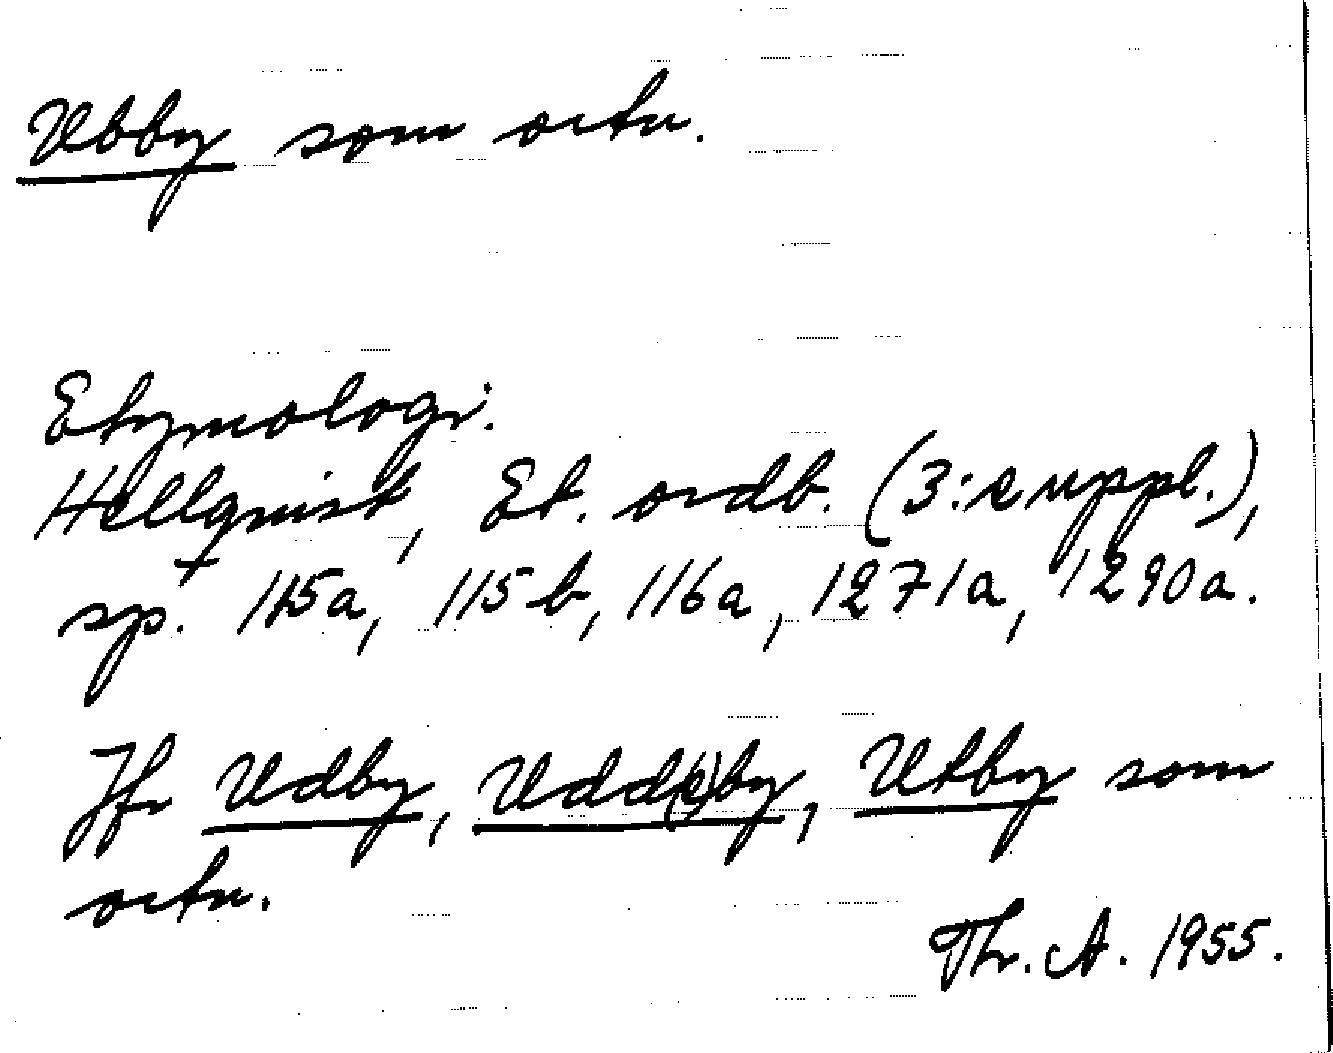 Ubby som ortn.
Etymologi:
Hellquist, Et. ordb. (3:e uppl.),
sp. 115a, 115b, 116a, 1271a, 1290a.
Jfr Udby, Udd(e)by, Utby som
ortn.
Thr. A. 1955.